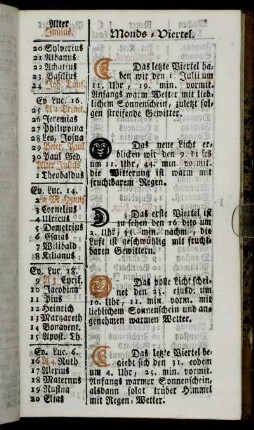 Alter
Junius.
20 Sylverius
21 Albanus
22 Achatius
23 Basilius
24 Joh. Tauf.
Ev. Luc. 16.
26 Jeremias
27 Philippina
28 Leo, Josua
29 Peter, Paul
30 Paul Ged.
1 Theobaldus
Ev. Luc. 14.
3 Cornelius
4 Ulricus
5 Demetrius
6 Esaias
7 Wilibald
8 Kilianus
Ev. Luc. 18.
9 Cyrill.
10 Jacobina
11 Pius
12 Heinrich
13 Margareth
14 Bonavent.
15 Apost. Th.
Ev. Luc. 6.
16 Ruth
17 Alexius
18 Maternus
19 Rufina
20 Elias
Monds-Viertel.
Das letzte Viertel ha-
ben wir den 1. Julii um
11. Uhr, 19. min. vormit.
Anfangs warm Wetter mit lieb-
lichem Sonnenschein, zuletzt fol-
gen streifende Gewitter.
Das neue Licht er-
blicken wir den 9. dieses
um 11. Uhr, 44. min. vormit.
die Witterung ist warm mit
fruchtbarem Regen.
Das erste Viertel ist
zu sehen den 16. dito um
2. Uhr, min. nachm., die
Luft ist geschwültig mit frucht-
baren Gewittern.
Das volle Licht schei-
net den 23. ejusd. um
10. Uhr, 11. min. vorm. mit
lieblichem Sonnenschein und an-
genehmen warmen Wetter.
Das letzte Viertel be-
giebt sich den 31. eodem
um 4. Uhr, 25. min. vormit.
Anfangs warmer Sonnenschein,
alsdann folgt trüber Himmel
mit Regen-Wetter.